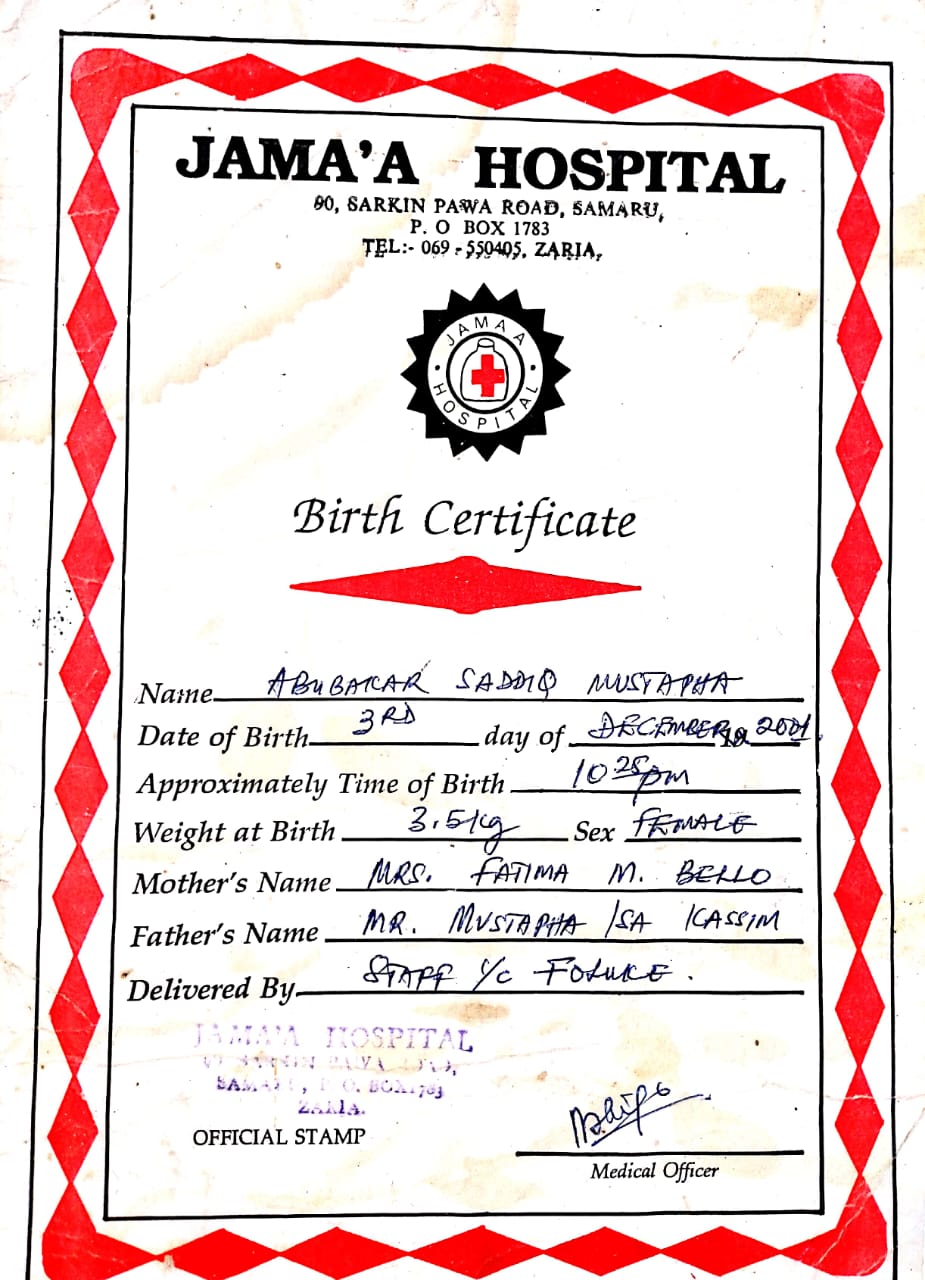 JAMA'A HOSPITAL
90, SARKIN PAWA ROAD, SAMARU,
P. O BOX 1783
TEL:- 069 - 550405, ZARIA,
JAMAA
HOSPITAL
Birth Certificate
Name ABUBAKAR SADDIQ MUSTAPHA
Date of Birth 3RD day of DECEMBER 19 2001.
Approximately Time of Birth 10 25pm
Weight at Birth 3.5kg Sex FEMALE
Mother's Name MRS. FATIMA M. BELLO
Father's Name MR. MUSTAPHA ISA KASSIM
Delivered By STAFF
JAMA'A HOSPITAL
ZARIA.
OFFICIAL STAMP
Medical Officer